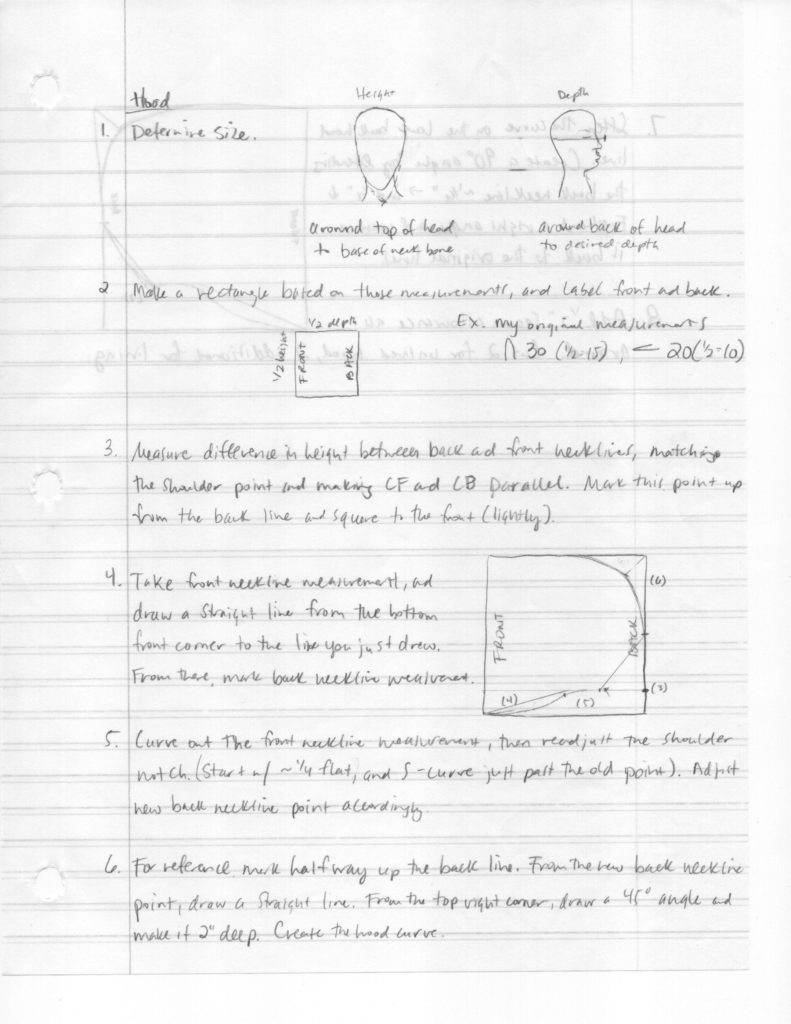 Hood
Height
Depth
1. Determine size.
around top of head
to base of neck bone
around back of head
to desired depth
2 Make a rectangle based on these measurements, and label front ad back.
1/2 depth
1/2 height
FRONT
BACK
Ex. my original measurements
30 (1/2=15), 20(1/2=10)
3. Measure difference in height between back ad front necklines, matching
the shoulder point and making CF ad CB parallel. Mark this point up
from the back line and square to the front (lightly).
4. Take front neckline measurement, ad
draw a straight line from the bottom
front corner to the line you just drew.
From there, mark back neckline measurement.
FRONT
BACK
(6)
(3)
(4)
(5)
5. Curve out the front neckline measurement, then readjust the shoulder
notch. (Start w/ ~1/4 flat, and S-curve just past the old point). Adjust
new back neckline point accordingly.
6. For reference, mark halfway up the back line. From the new back neckline
point, draw a straight line. From the top right corner, draw a 45° angle and
make it 2" deep. Create the hood curve.